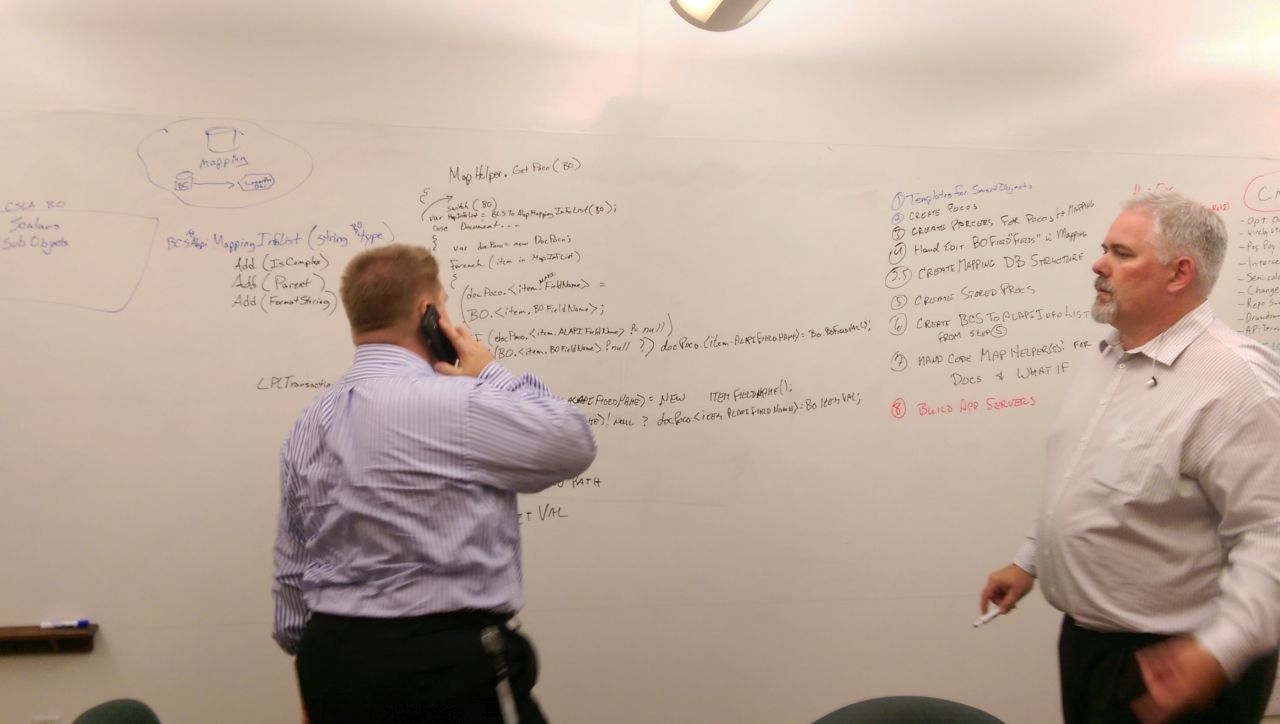 Mapping
BCS
CSLA BO
Scalars
Sub Objects
BCS To Alapi Mapping Info List (string BO type)
Add (IsComplex)
Add (Parent)
Add (FormatString)
LPLTransactio
MapHelper. Get Poco (BO)
{
Switch (BO)
var MapInfoList = BCS To Alapi Mapping Info List (BO);
Case Document...
{ var docPoco = new DocPoco;
foreach (item in MapInfoList)
{
(docPoco.<item. FieldName> =
BO.<item. BO FieldName>;
(docPoco.<item. ALAPI FieldName> ?= null)
(BO.<item. BO FieldName> != null ?) docPoco.(item. ALAPI FIELDNAME) = BO.BOFieldVal();
FIELDNAME) = NEW ITEM FIELDNAME();
)! NULL ? docPoco.<item ALAPI FIELD NAME> = BO ITEM VAL;
PATH
ET VAL
① Templates for Smart Objects
② CREATE POCOS
③ CREATE PARSERS FOR POCOS to MAPPING
④ Hand Edit BO Field "Fields" in Mapping
5.5 CREATE MAPPING DB STRUCTURE
⑤ CREATE STORED PROCS
⑥ CREATE BCS TO ALAPI INFO LIST
FROM STEP ⑤
⑦ HAND CODE MAP HELPER(S) FOR
DOCS & WHAT IF
⑧ BUILD APP SERVERS
- Opt O
- Pos Pay
- Interce
- Semi-col
- Change
- Repo S
- Drawdown
- AP-Term